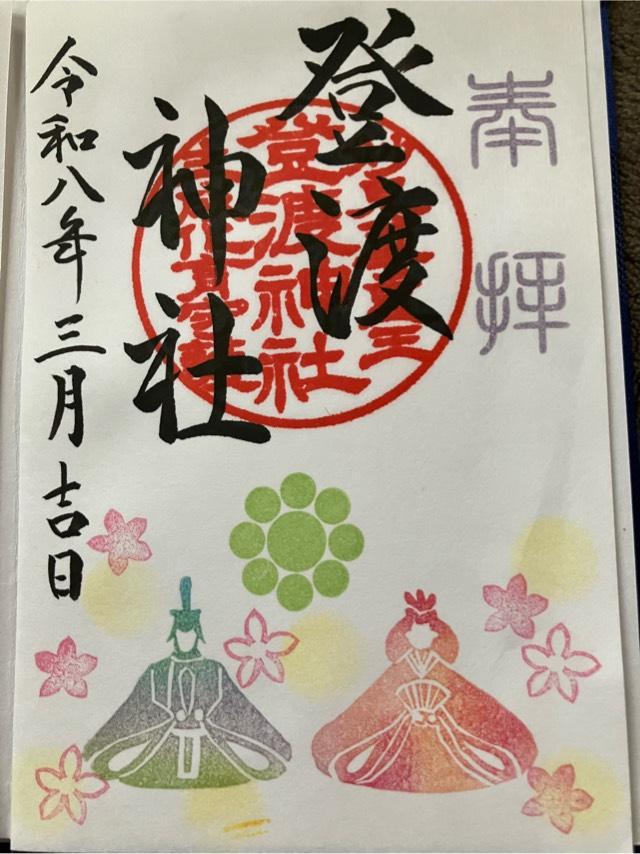 奉拝
登渡
神社
登渡神社
令和八年三月吉日